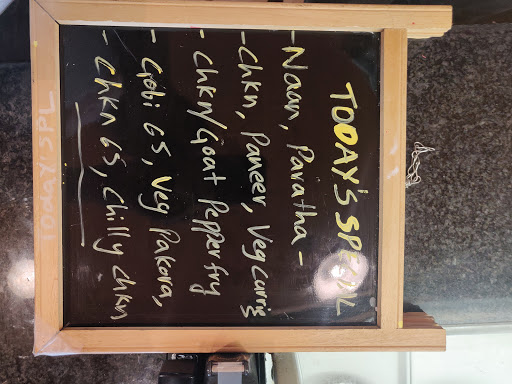 TODAY'S SPECIAL
- Naan, Paratha -
- Chkn, Paneer, Veg curris
- Chkn/Goat Pepperfry
- Gobi 65, Veg Pakora,
- Chkn 65, Chilly chkn
TODAY'S SPL